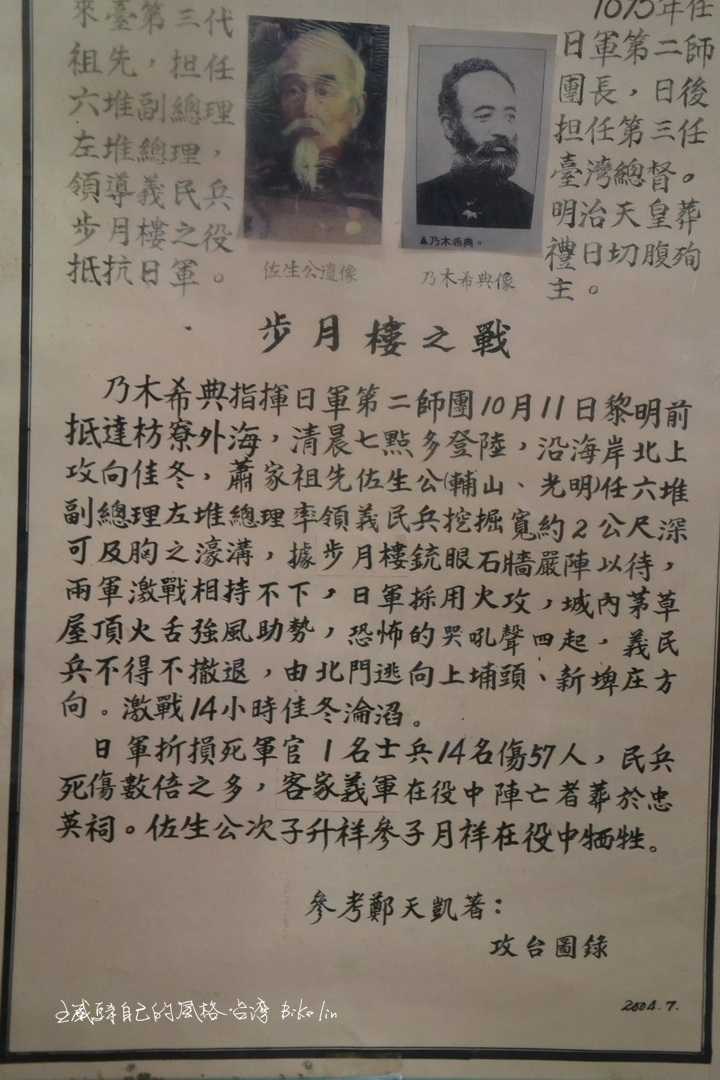 來臺第三代
祖先，担任
六堆副總理
左堆總理，
領導義民兵
步月樓之役
抵抗日軍。
佐生公遺像
▲乃木希典。
乃木希典像
1895年任
日軍第二師
團長，日後
担任第三任
臺灣總督。
明治天皇葬
禮日切腹殉
主。
步月樓之戰
乃木希典指揮日軍第二師團10月11日黎明前
抵達枋寮外海，清晨七點多登陸，沿海岸北上
攻向佳冬，蕭家祖先佐生公(輔山、光明)任六堆
副總理左堆總理率領義民兵挖掘寬約2公尺深
可及胸之濠溝，據步月樓銃眼石牆嚴陣以待，
兩軍激戰相持不下，日軍採用火攻，城內茅草
屋頂火舌強風助勢，恐怖的哭吼聲四起，義民
兵不得不撤退，由北門逃向上埔頭、新埤庄方
向。激戰14小時佳冬淪滔。
日軍折損死軍官1名士兵14名傷57人，民兵
死傷數倍之多，客家義軍在役中陣亡者葬於忠
英祠。佐生公次子升祥參子月祥在役中牺牲。
參考鄭天凱著：
攻台圖錄
2004.7.
自己的風格 台灣 Biko lin